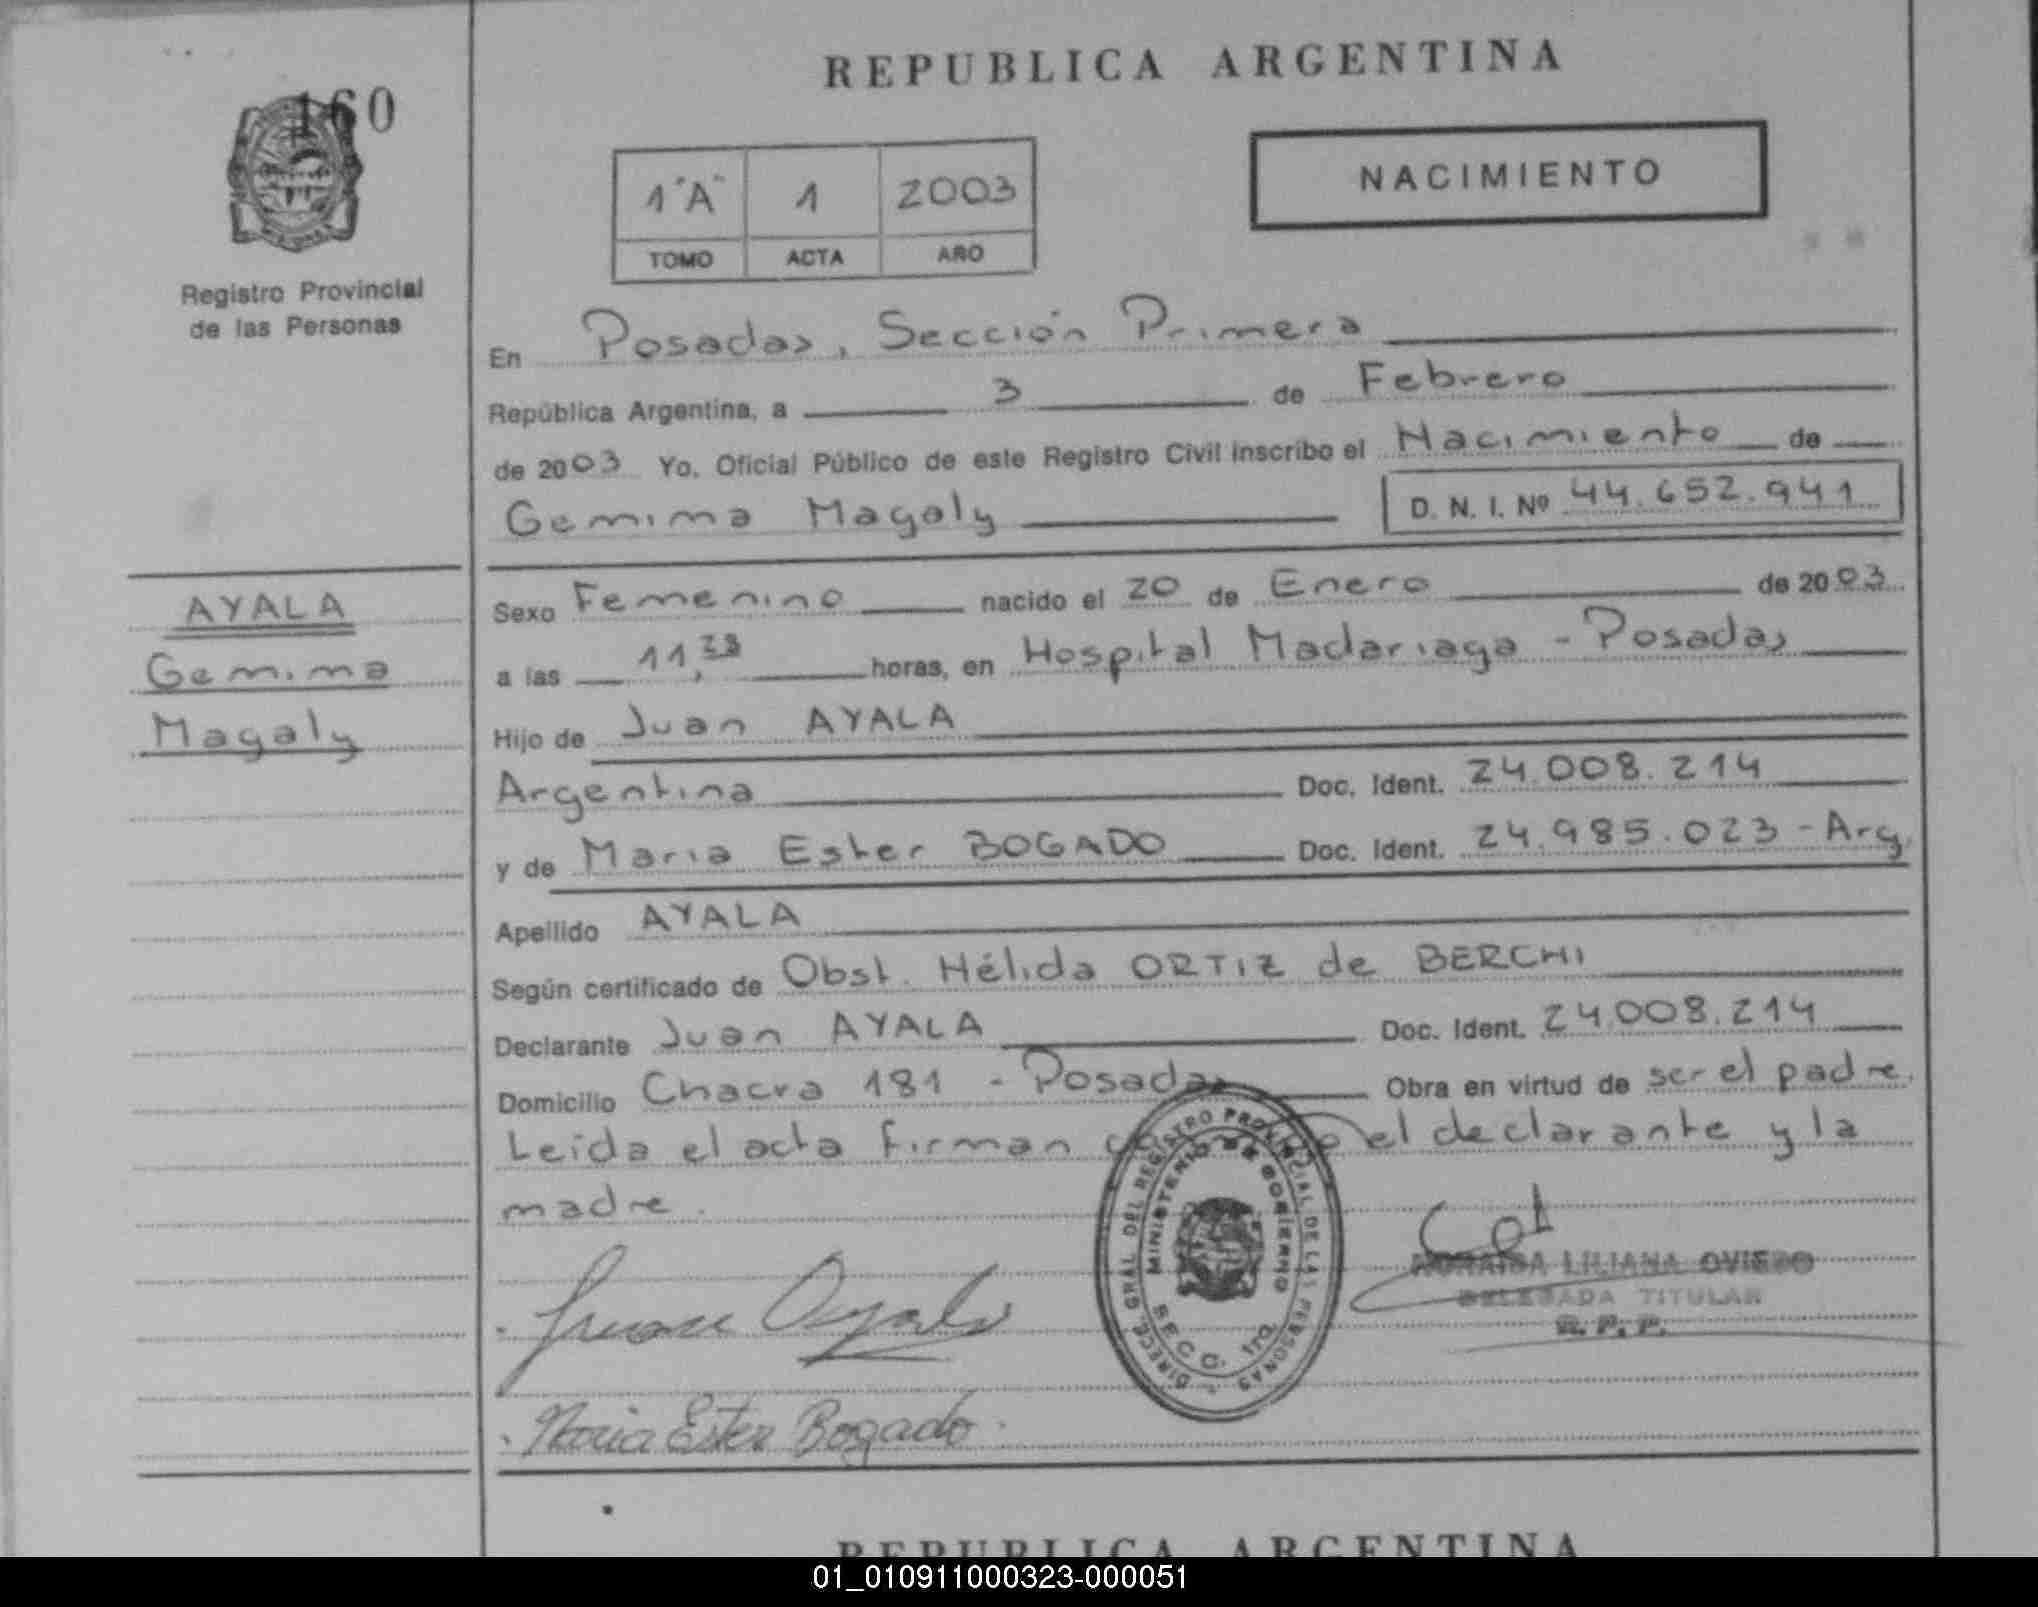 REPUBLICA ARGENTINA
160
NACIMIENTO
1 "A" 1 2003
TOMO ACTA AÑO
Registro Provincial
de las Personas
En Posadas, Sección Primera
República Argentina, a 3 de Febrero
de 2003 Yo, Oficial Público de este Registro Civil inscribo el Nacimiento de
Gemima Magaly D. N. I. Nº 44.652.941
AYALA
Gemima
Magaly
Sexo Femenino nacido el 20 de Enero de 2003
a las 11,38 horas, en Hospital Madariaga - Posadas
Hijo de Juan AYALA
Argentina Doc. Ident. 24.008.214
y de Maria Ester BOGADO Doc. Ident. 24.985.023 - Arg.
Apellido AYALA
Según certificado de Obst. Hélida ORTIZ de BERCHI
Declarante Juan AYALA Doc. Ident. 24.008.214
Domicilio Chacra 181 - Posadas Obra en virtud de ser el padre.
Leída el acta firman el declarante y la
madre.
DIRECC. GRAL DEL REGISTRO PROVINCIAL DE LAS PERSONAS
MINISTERIO DE GOBIERNO
SECC. 1ra
LILIANA OVIEDO
DELEGADA TITULAR
R. P. P.
Juan Ayala
Maria Ester Bogado
REPUBLICA ARGENTINA
01_010911000323-000051